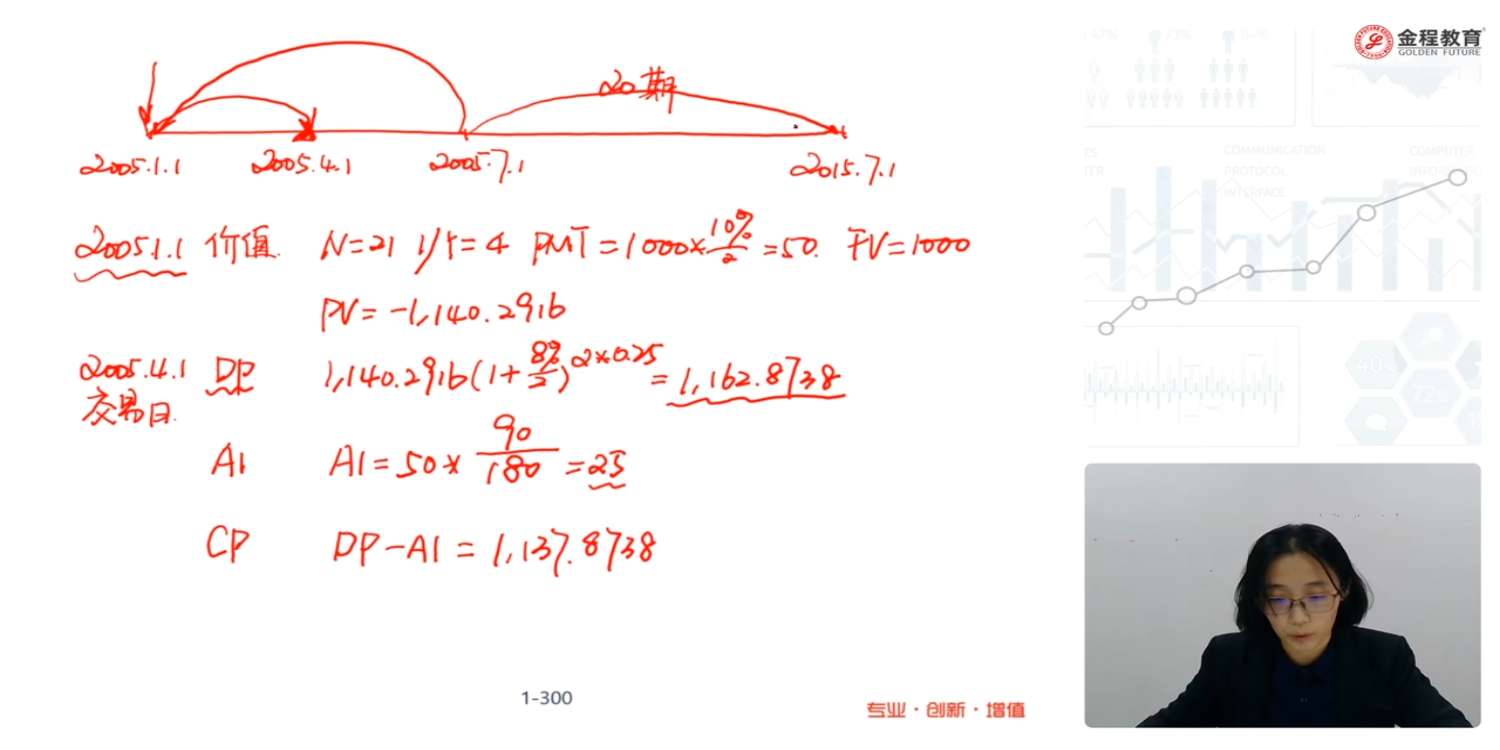 金程教育
GOLDEN FUTURE
20期
2005.1.1 2005.4.1 2005.7.1 2015.7.1
2005.1.1 价值 N=21 I/Y=4 PMT=1000*10%/2=50. FV=1000
PV=-1,140.2916
2005.4.1 DP 1,140.2916(1+8%/2)^2*0.25=1,162.8738
交易日
AI AI=50*90/180=25
CP DP-AI=1,137.8738
1-300
专业·创新·增值
COMMUNICATION
PROTOCOL
INTERFACE
COMPUTER
40%
72%